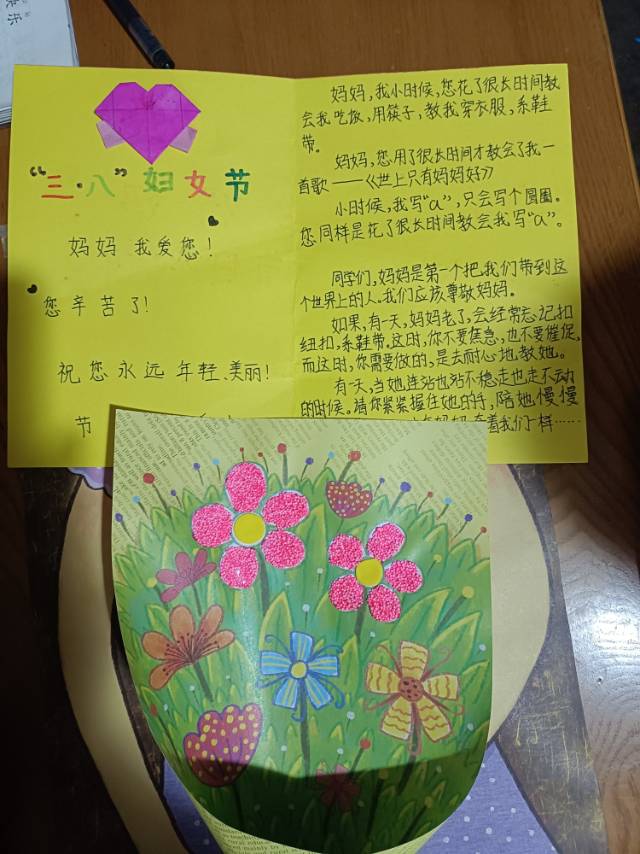 快乐
"三·八"妇女节
妈妈 我爱您！
您辛苦了！
祝您永远年轻、美丽！
节
妈妈，我小时候，您花了很长时间教
会我吃饭，用筷子，教我穿衣服，系鞋
带。
妈妈，您用了很长时间才教会了我一
首歌——《世上只有妈妈好》
小时候，我写"a"，只会写个圆圈。
您同样是花了很长时间教会我写"a"。
同学们，妈妈是第一个把我们带到这
个世界上的人，我们应该尊敬妈妈。
如果，有一天，妈妈老了，会经常忘记扣
纽扣，系鞋带。这时，你不要焦急，也不要催促，
而这时，你需要做的，是去耐心地教她。
有一天，当她连站也站不稳，走也走不动
的时候。请你紧紧握住她的手，陪她慢慢
妈妈牵着我们一样……